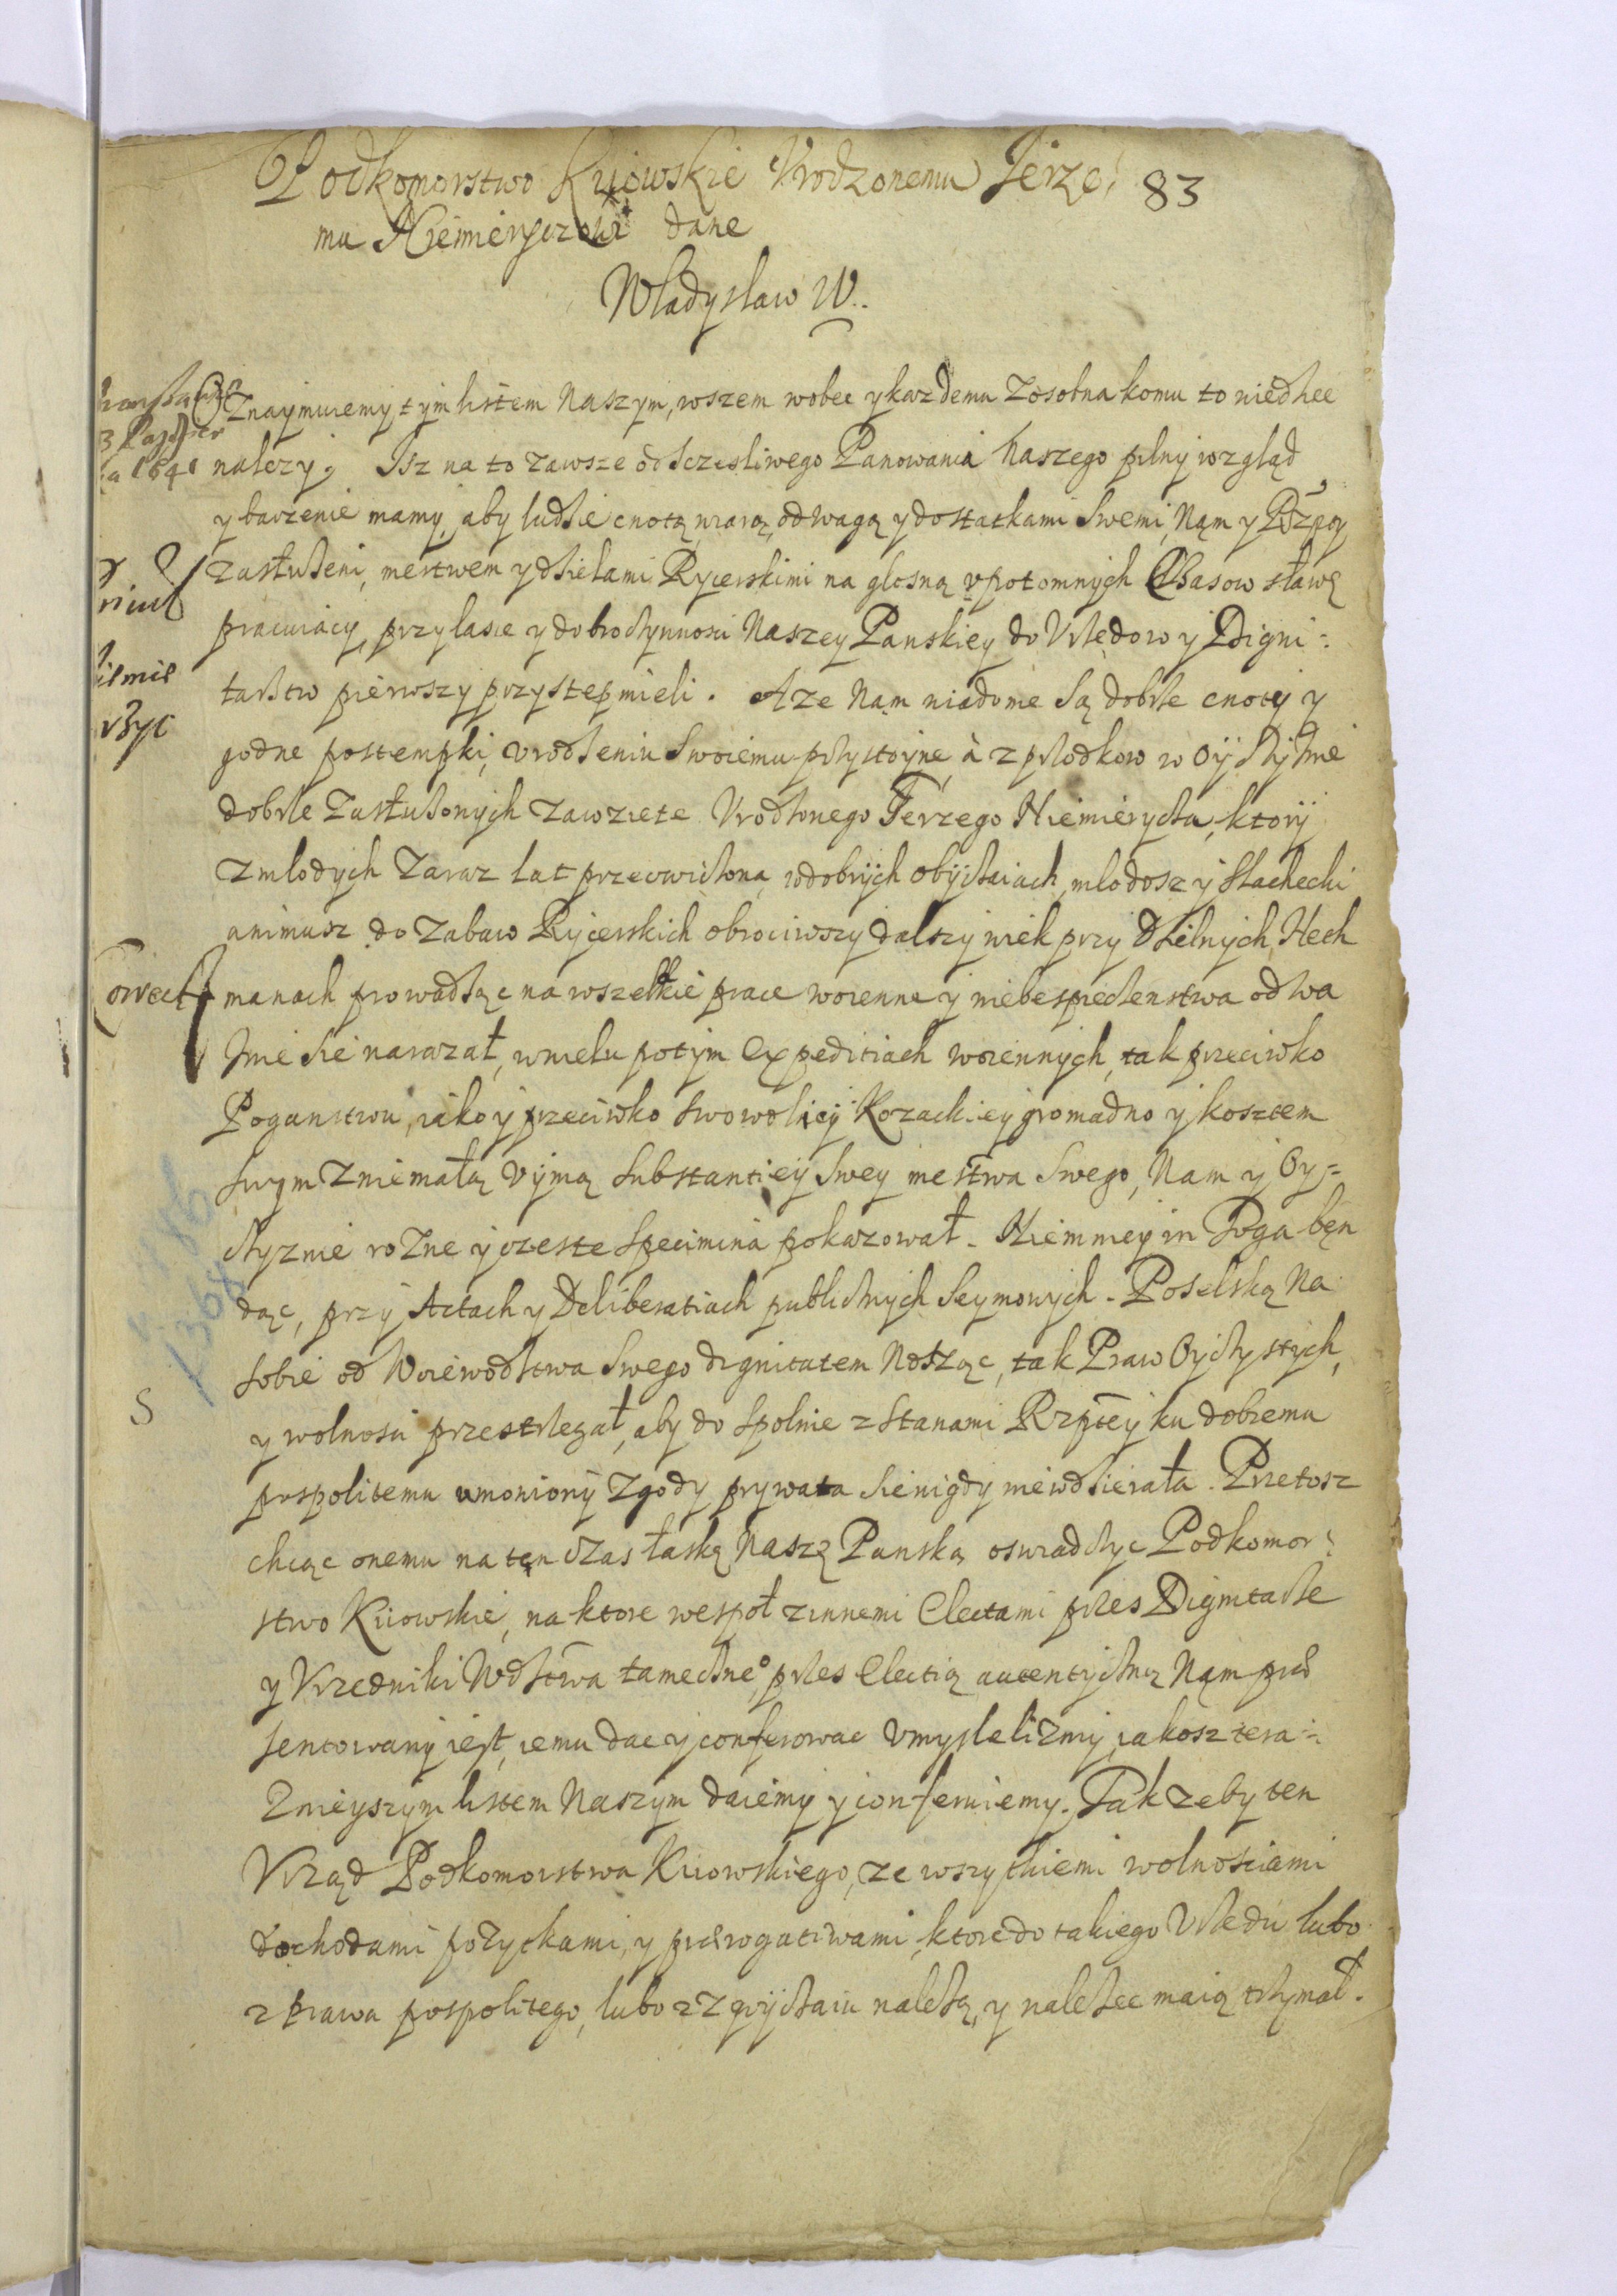 Podkomorstwo Kijowskie Vrodzonemu Jerze⸗ 83
mu Niemieryczowi dane
Władysław W.
Oznaymuiemy tym listem Naszym, wszem wobec y kazdemu Zosobna komu to wiedziec
należy. Isz na to zawsze od sczesliwego Panowania Naszego pilny wzgląd
y baczenie mamy, aby ludzie cnotą, wiarą, odwagą y dostatkami Swemi, Nąm y Rzptey
zasłużeni, mestwem y dziełami Rycerskimi na głosną v potomnych Czasow sławę
pracuiący, przy łasce y dobroczynnosci Naszey Panskiey do Vrzędow y Digni⸗
tarstw pierwszy przystęp mieli. A ze Nąm wiadome Są dobrze cnoty y
godne postempki, vrodzeniu Swoiemu przystoyne, à z przodkow w Oyczyznie
dobrze Zasłużonych zawziete Vrodzonego Jerzego Niemierycza, ktory
z młodych Zaraz lat przecwiczoną w dobrych obyczaiach, młodosz y szlachecki
animusz do zabaw Rycerskich obrociwszy dalszy wiek przy dzielnych Het
manach prowadząc na wszelkie prace woienne y niebespieczenstwa odwa
znie sie narazał, w wielu potym Expeditiach woiennych, tak przeciwko
Poganstwu, iako y przeciwko swowolney Kozackiey gromadno y kosztem
swym z niemałą vymą Substantiey Swey mestwa Swego, Nam y Oy⸗
czyznie rożne y czeste Specimina pokazował. Niemmiey in Toga bęn
dąc, przy Actach y Deliberatiach publicznych Seymowych. Poselską Na
sobie od Woiewodstwa Swego dignitatem Nosząc, tak Praw Oyczystych,
y wolnosci przestrzegał, aby do spolnie z Stanami Rzptey ku dobremu
pospolitemu umowiony zgody prywata sie nigdy niewdzierała. Przetosz
chcąc onemu na ten czas łaskę Naszę Panską oswiadczyc Podkomor⸗
stwo Kiiowskie, na ktore wespoł z innemi Electami przes Dignitarze
y Vrzedniki Wdztwa tameczneo, przes Electią autentyczną Nąm prae
sentowany iest, iemu dac y conferowac Vmyslelizmy, iakosz tera⸗
znieyszym listem Naszym daiemy y conferuiemy. Tak zeby ten
Vrząd Podkomorstwa Kiiowskiego, ze wszytkiemi wolnosciami
dochodami pożytkami, y praerogatiwami, ktore do takiego Vrzedu lubo
z prawa pospolitego, lubo z zwyczaiu należą, y należec maią trzymał.